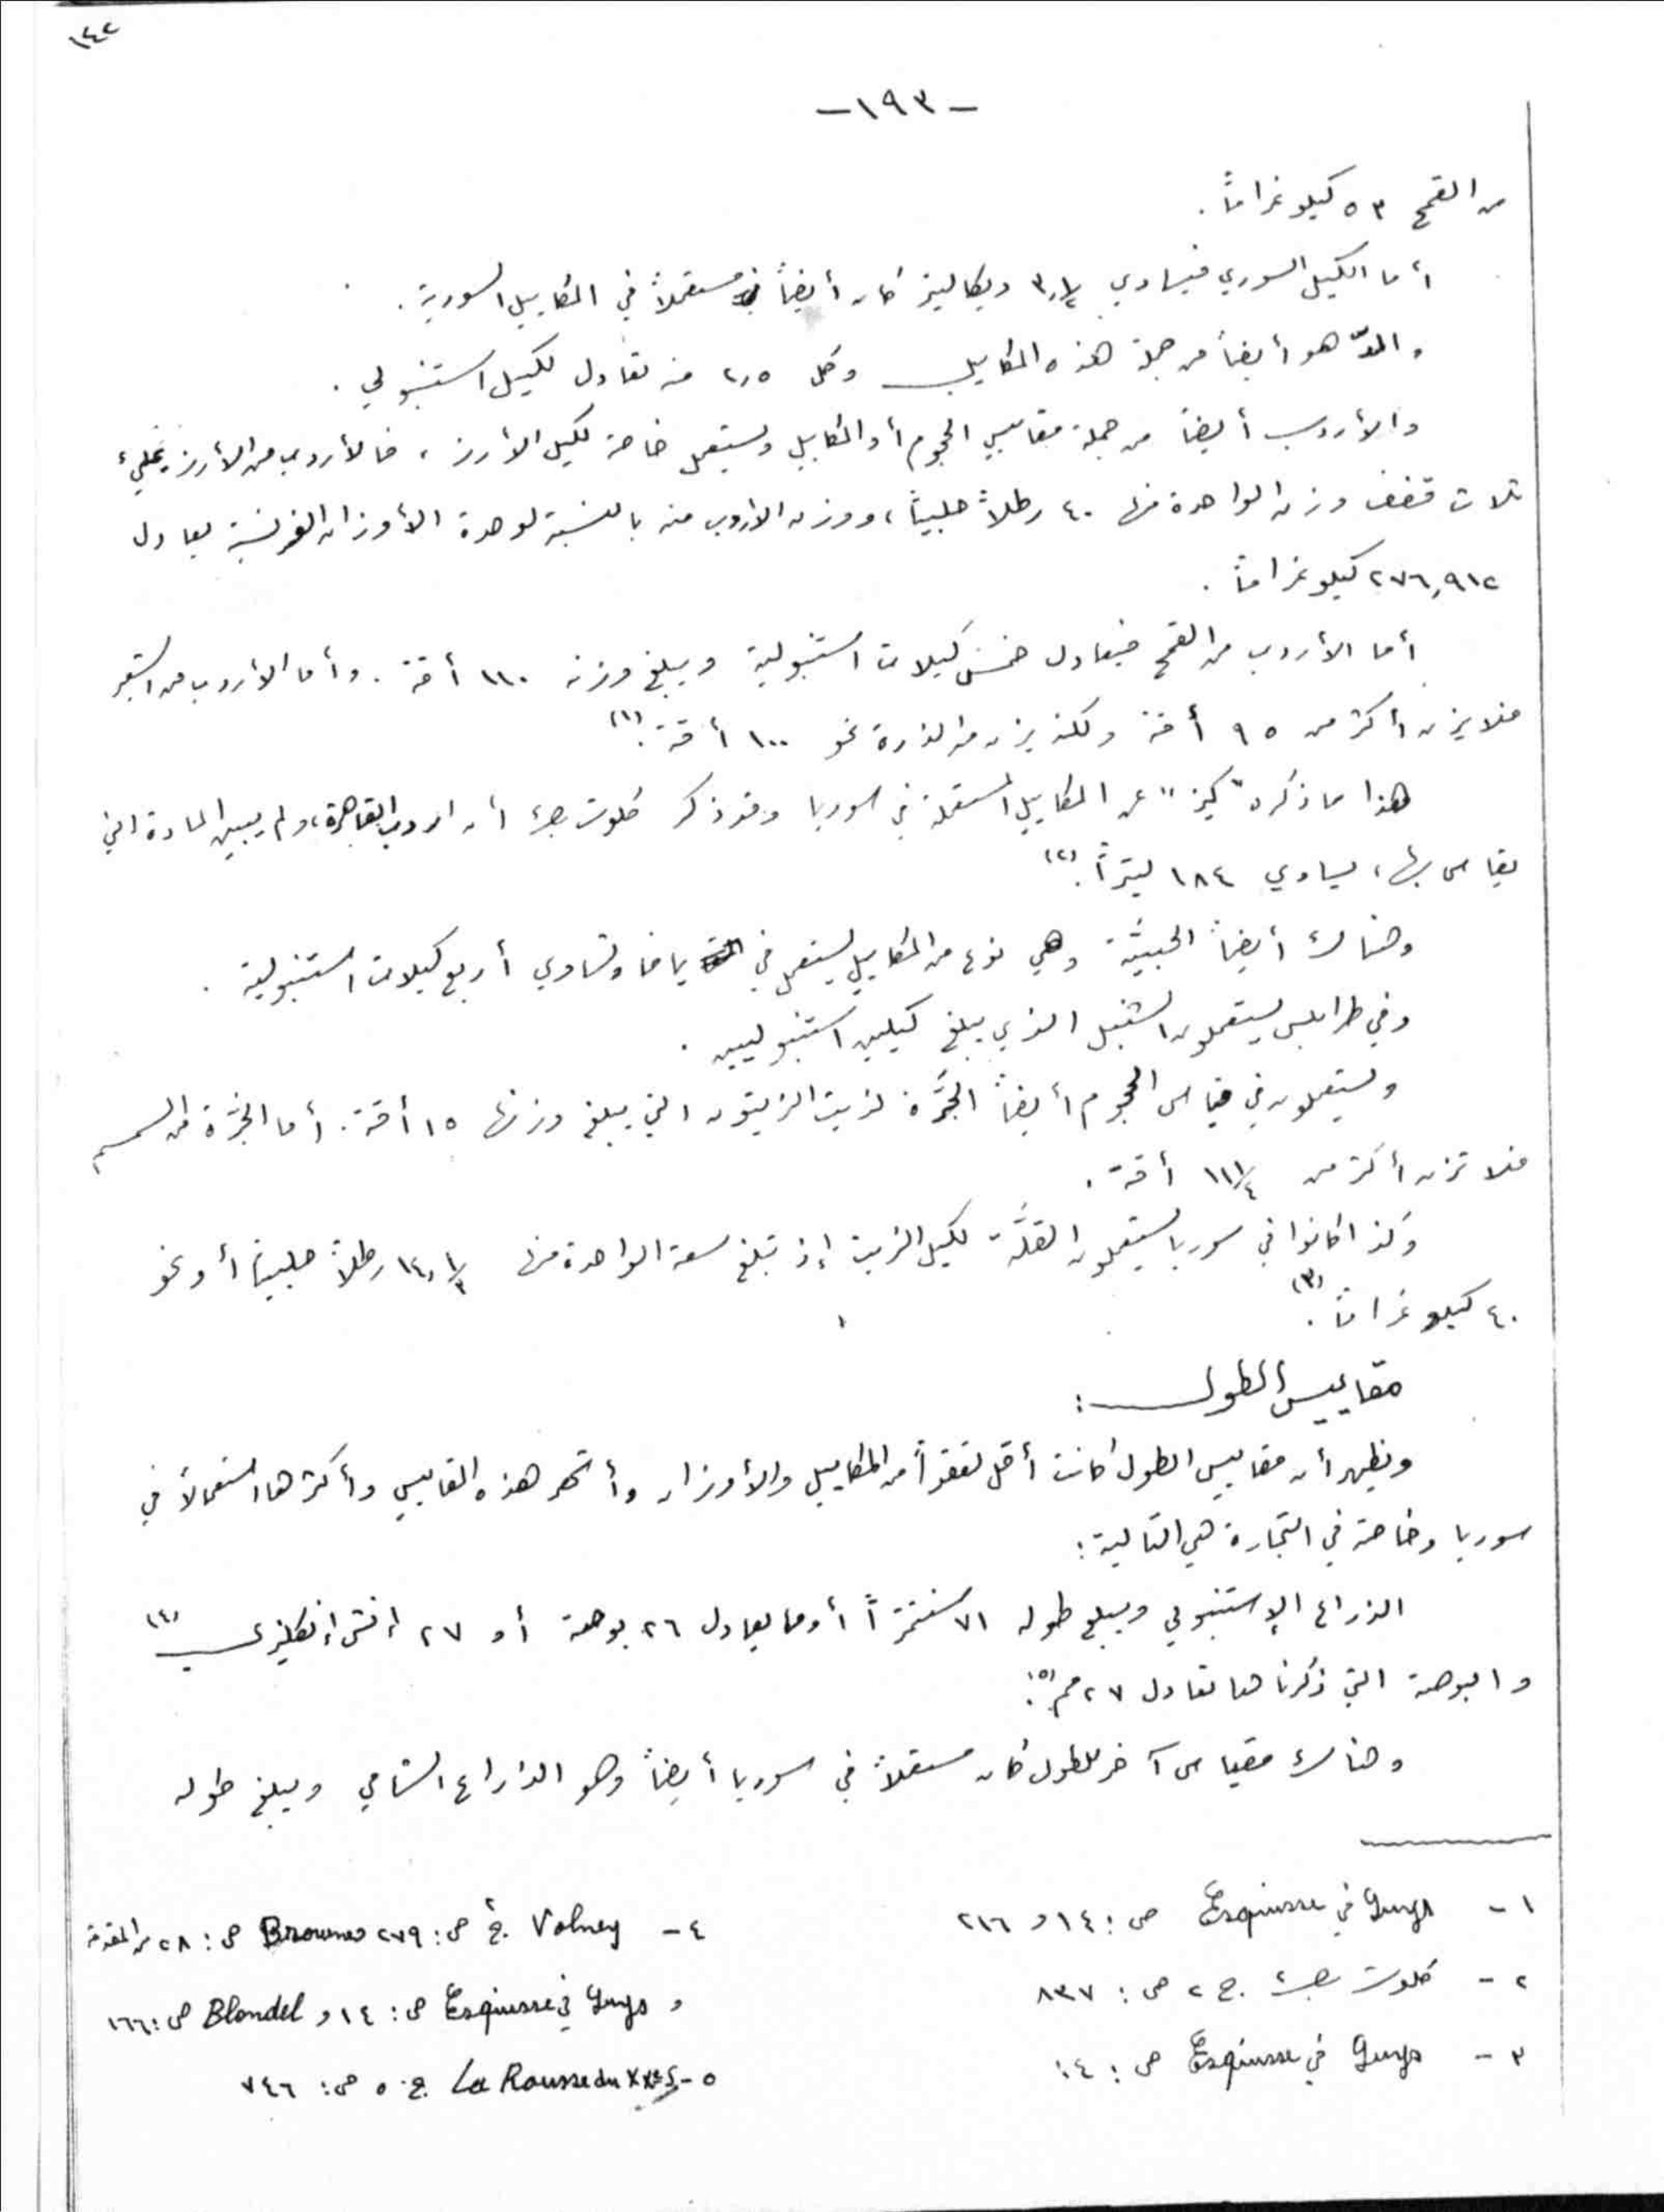 ١٤٢
-١٩٣-
من القمح ٥٣ كيلو غراماً .
أما الكيل السوري فيساوي ٣,١/٢ ديكاليتر كان أيضاً مستعملاً في المكاييل السورية .
والمدّ هو أيضاً من جملة هذه المكاييل وكل ٢,٥ منه تعادل لكيل استنبولي .
والأردب أيضاً من جملة مقاييس الحجوم أو المكاييل ويستعمل خاصة لكيل الأرز ، فالأردب من الأرز يملىء
ثلاث قفف وزن الواحدة منها ٤٠ رطلاً حلبياً ، ووزن الاردب منه بالنسبة لوحدة الأوزان الفرنسية يعادل
٢٧٦,٩١٢ كيلو غراماً .
أما الأردب من القمح فيعادل خمس كيلات استنبولية ويبلغ وزنه ١١٠ أقة . وأما الأردب من الشعير
فلا يزن أكثر من ٩٥ أقة ولكنه يزن من الذرة نحو ١٠٠ أقة .(١)
هذا ما ذكره "كيز" عن المكاييل المستعملة في سوريا وقد ذكر كلوت بك أن اردب القاهرة ، ولم يبين المادة التي
يقاس بها ، يساوي ١٨٤ ليتراً .(٢)
وهناك أيضاً الحبيّة وهي نوع من المكاييل يستعمل في يافا وتساوي أربع كيلات استنبولية .
وفي طرابلس يستعملون الشنبل الذي يبلغ كيلين استنبوليين .
ويستعملون في قياس الحجوم أيضاً الجَرَّة لزيت الزيتون التي يبلغ وزنها ١٥ أقة . أما الجرّة من السمسم
فلا تزن أكثر من ١١ ١/٤ أقة .
وكذا كانوا في سوريا يستعملون القلَّة لكيل الزيت إذ تبلغ سعة الواحدة منها ١٤,١/٣ رطلاً حلبياً أو نحو
٤٠ كيلو غراماً .(٣)
مقاييس الطول :
ويظهر أن مقاييس الطول كانت أقل تعقداً من المكاييل والأوزان وأشهر هذه المقاييس وأكثرها استعمالاً في
سوريا وخاصة في التجارة هي التالية :
الذراع الإستنبولي ويبلغ طوله ٧١ سنتمتراً أو ما يعادل ٢٦ بوصة أو ٢٧ إنش إنكليزي .(٤)
والبوصة التي ذكرناها تعادل ٢٧ مم .(٥)
وهناك مقياس آخر للطول كان مستعملاً في سوريا أيضاً وهو الذراع الشامي ويبلغ طوله
١ - Guys في Esquisse ص : ١٤ و ٢١٦
٢ - كلوت بك ج ٢ ص : ٨٣٧
٣ - Guys في Esquisse ص : ١٤
٤ - Volney ج ٢ ص : ٢٧٩ Brownes ص : ٢٨ من المقدمة
و Guys في Esquisse ص : ١٤ و Blondel ص : ١٦٦
٥ - La Rousse du XXe S ج . ٥ ص : ٧٤٦